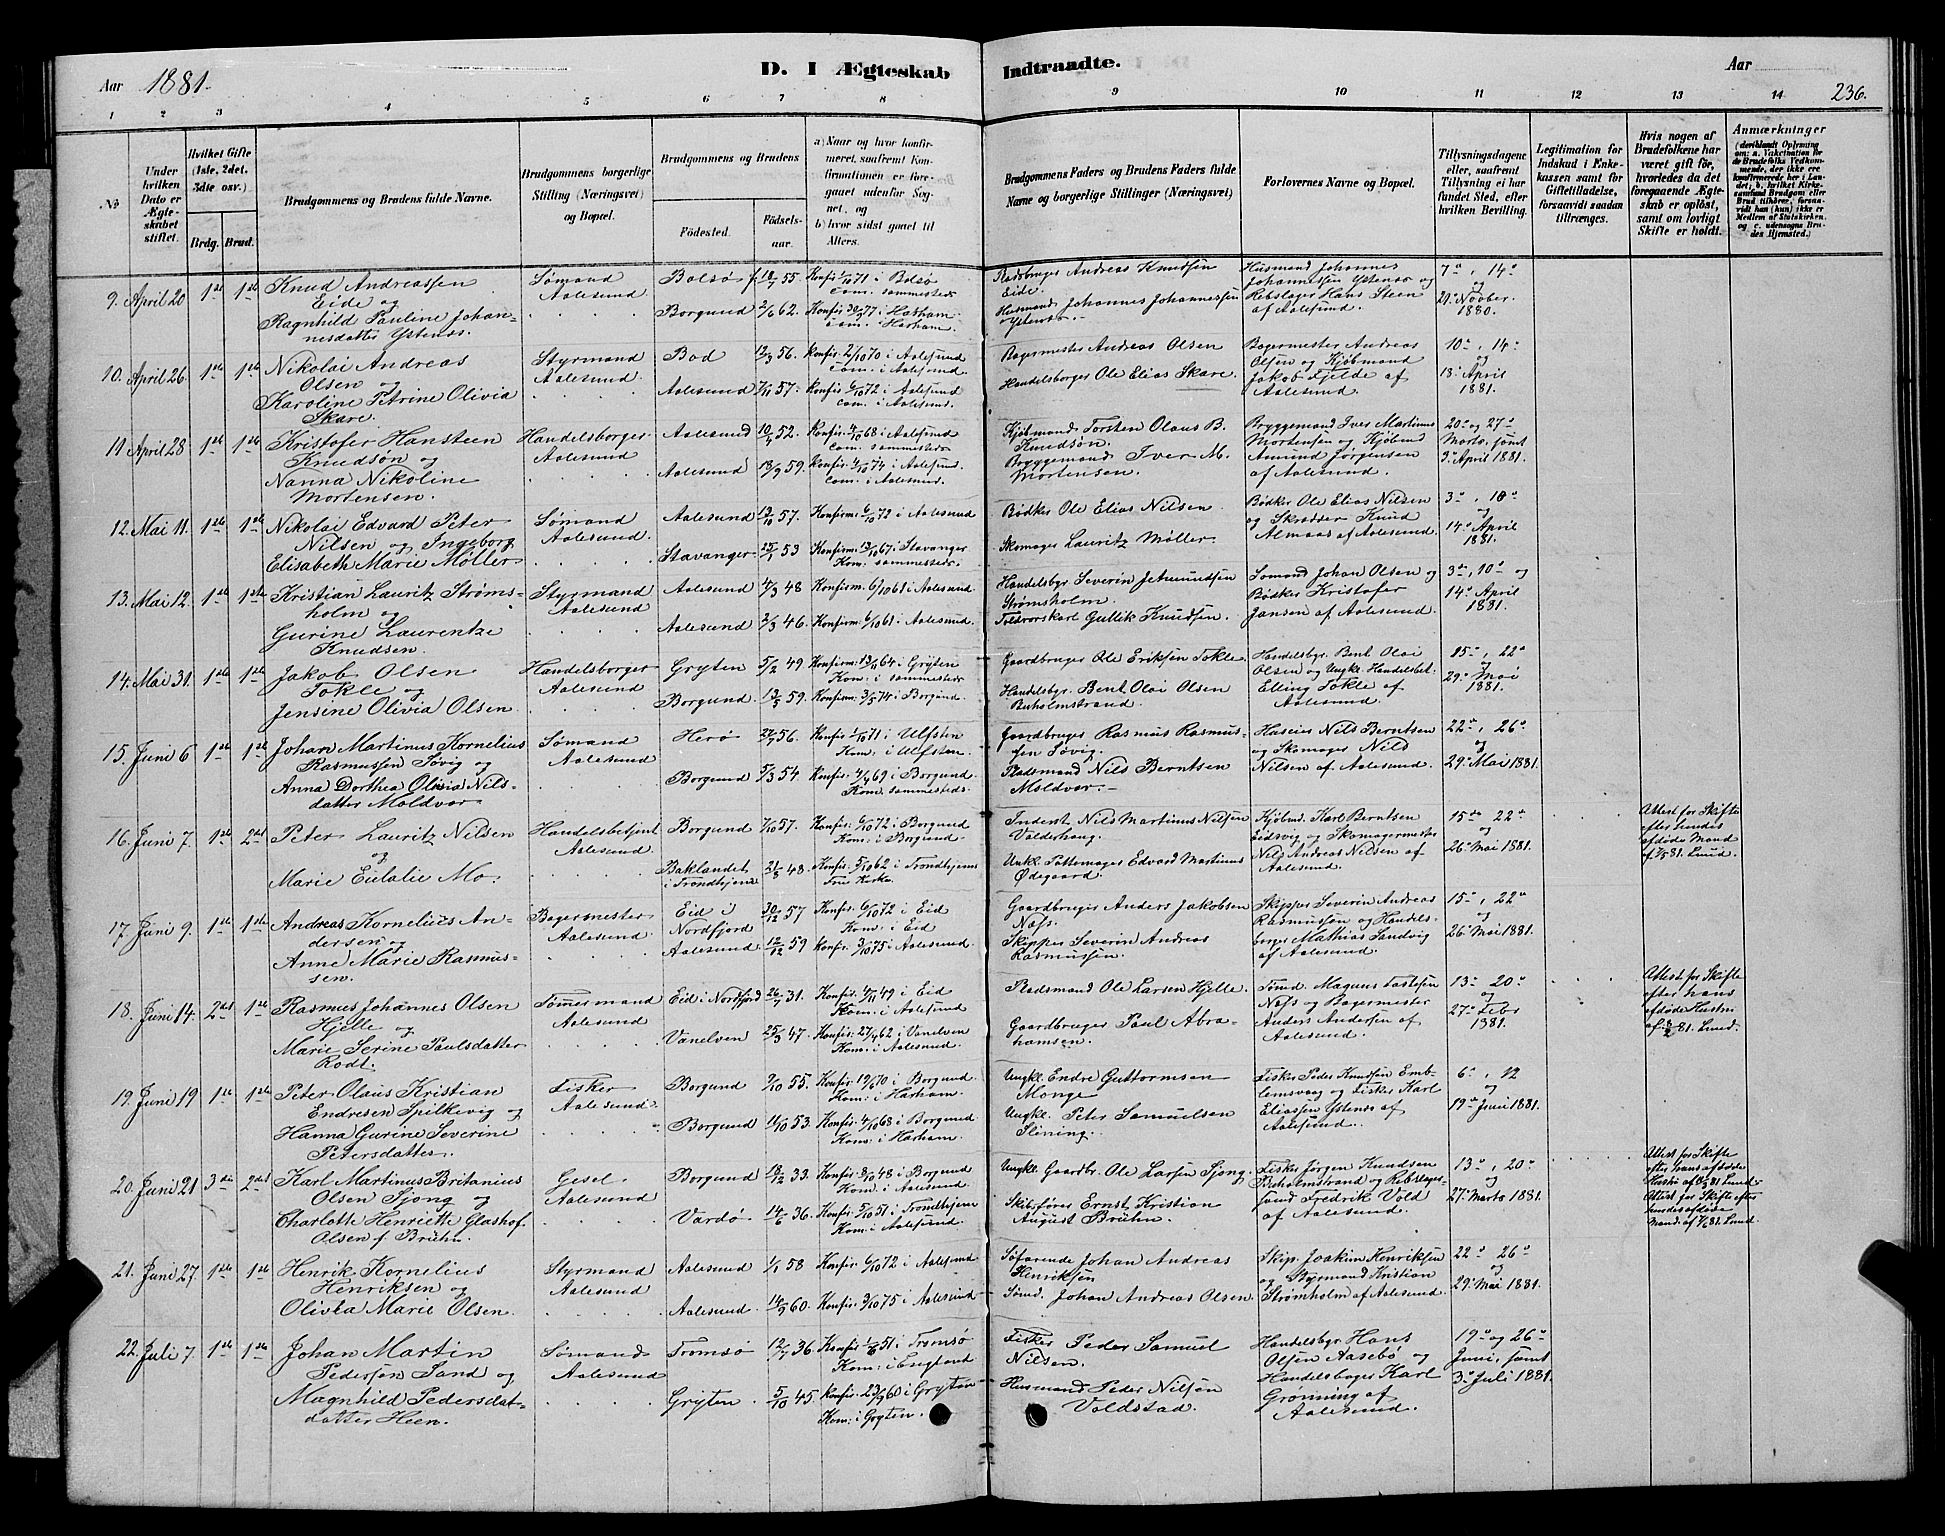 Aar 1881. D. I Ægteskab Indtraadte. Aar
236.
1 2 3 4 5 6 7 8 9 10 11 12 13 14
No
Under hvilken Dato er Ægteskabet stiftet.
Hvilket Gifte (1ste, 2det, 3dte osv.)
Brdg. Brud.
Brudgommens og Brudens fulde Navne.
Brudgommens borgerlige Stilling (Næringsvei) og Bopæl.
Brudgommens og Brudens
Födested. Födselsaar.
a) Naar og hvor konfirmeret, saafremt Konfirmationen er foregaaet udenfor Sognet, og
b) hvor sidst gaaet til Alters.
Brudgommens Faders og Brudens Faders fulde Navne og borgerlige Stillinger (Næringsvei)
Forlovernes Navne og Bopæl.
Tillysningsdagene eller, saafremt Tillysning ei har fundet Sted, efter hvilken Bevilling.
Legitimation for Indskud i Enkekassen samt for Giftetilladelse, forsaavidt saadan tiltrænges.
Hvis nogen af Brudefolkene har været gift för, hvorledes da det foregaaende Ægteskab er oplöst, samt om lovligt Skifte er holdt.
Anmærkninger (deriblandt Oplysning om: a. Vakcination for de Brudefolks Vedkommende, der ikke ere konfirmerede her i Landet; b. hvilket Kirkesamfund Brudgom eller Brud tilhöre, forsaavidt han (hun) ikke er Medlem af Statskirken, og c. udensogns Brudes Hjemsted.)
9. April 20 1ste 1ste Knud Andreassen Eide og Sømand Aalesund Bolsø 55 Konfir. 71 i Bolsø Com. sammesteds Andreas Knudsen Eide Husmand Johannes Johannessen Ystenes og Rebslager Hans Steen af Aalesund 7de, 14de og
Ragnhild Pauline Johannesdatter Ystenes. Borgund 2/6 62 Konfir. 77 i Harham Com. i Harham Husmand Johannes Johannessen Ystenes. 21. Novber. 1880.
10. April 26 1ste 1ste Nikolai Andreas Olsen og Styrmand Aalesund Bod 56. Konfir. 2/10 70 i Aalesund Com. i Aalesund Bagermester Andreas Olsen Bagermester Andreas Olsen og Kjøbmand Jakob Fjelde af Aalesund. 10de, 14de og
Karoline Petrine Olivia Skare. Aalesund 57. Konfir. 6/10 72 i Aalesund Com. i Aalesund Handelsborger Ole Elias Skare. 18. April 1881.
11 April 28 1ste 1ste Kristofer Hansteen Knudsøn og Handelsborger Aalesund Aalesund 52. Konfir. 4/10 68 i Aalesund Com. sammesteds Kjøbmand Torsten Olaus B. Knudsøn. Bryggemand Iver Martinus Mortensen og Kjøbmd Amund Jørgensen af Aalesund. 20de og 27de Marts, samt
Nanna Nikoline Mortensen. Aalesund 59. Konfir. 4/10 74 i Aalesund. Com. i Aalesund. Bryggemand Iver M. Mortensen. 3. April 1881.
12. Mai 11. 1ste 1ste Nikolai Edvard Peter Nilsen og Ingeborg Sømand Aalesund Aalesund 57. Konfirm. 6/10 72 i Aalesund Bødker Ole Elias Nilsen. Bødker Ole Elias Nilsen og Skrædder Knud Almaas af Aalesund. 3de, 10de og
Elisabeth Marie Møller Stavanger 53 Konfirm. 67. i Stavanger Kom. sammesteds. Skomager Lauritz Møller. 14de April 1881.
13. Mai 12. 1ste 1ste Kristian Lauritz Strømsholm og Styrmand Aalesund Aalesund 48 Konfirm. 6/10 61 i Aalesund Handelsbgr. Severin Jetmundsen Strømsholm. Sømand Johan Olsen og Bødker Kristofer Jansen af Aalesund. 3de, 10de og
Gurine Laurentze Knudsen. Aalesund 2/3 46. Konfirm. 6/10 61 i Aalesund. Toldvorskarl Gullik Knudsen. 14de April 1881.
14. Mai 31. 1ste 1ste Jakob Olsen Tokle og Handelsborger Aalesund Gryten 5/2 49 Konfirm. 64 i Gryten Kom. i sammesteds Gaardbruger Ole Eriksen Tokle. Handelsbgr. Bent Olai Olsen og Ungk. Handelsbet. Elling Tokle af Aalesund. 15de, 22de og
Jensine Olivia Olsen. Borgund. 59. Konfirm. 3/5 74 i Borgund. Handelsbgr. Bent Olai Olsen Buholmstrand. 29. Mai 1881.
15. Juni 6 1ste 1ste Johan Martinus Kornelius Rasmussen Søvig og Sømand Aalesund Herø 56. Konfir. 71 i Ulfsten Kom. i Ulfsten. Gaardbruger Rasmus Rasmussen Søvig. Nils Berntsen og Skomager Nils Nilsen af Aalesund. 22de, 26de og
Anna Dorthea Olivia Nilsdatter Moldvær. Borgund 5/3 54 Konfir. 69 i Borgund. Kom. sammesteds. Pladsmand Nils Berntsen Moldvær. 29. Mai 1881.
16. Juni 7. 1ste 2det Peter Lauritz Nilsen og Handelsbetjent Aalesund Borgund 57. Konfir. 6/10 72 i Borgund Kom. i Borgund. Nils Martinus Nilsen Valderhaug. Kjøbmd. Karl Berntsen Eidsvig og Skomagermester Nils Andreas Nilsen af Aalesund. 15de, 22de og Attest for Skifte efter hendes afdøde Mand af 81. Lund.
Marie Eulalie Mo. Baklandet i Trondhjem 48. Konfir. 5/10 62 i Trondhjems Frue Kirke. Ungk. Pottemager Edvard Martinus Ødegaard. 26. Mai 1881.
17 Juni 9. 1ste 1ste Andreas Kornelius Andersen og Bagermester Aalesund. Eid i Nordfjord 30/12 57 Konfir. 6/10 72 i Eid Kom. i Eid Gaardbruger Anders Jakobsen Næs. Skipper Severin Andreas Rasmussen og Handelsborger Mathias Sandvig af Aalesund. 15de, 22de og
Anne Marie Rasmussen. Aalesund 59 Konfir. 3/10 75 i Aalesund. Skipper Severin Andreas Rasmussen. 26. Mai 1881.
18. Juni 14. 2det 1ste Rasmus Johannes Olsen Hjelle og Tømmermand Aalesund Eid i Nordfjord 31. Konfir. 49 i Eid Kom. i Aalesund Pladsmand Ole Larsen Hjelle. Magnus og Bagermester Anders Andersen af Aalesund. 13de, 20de og Attest for Skifte efter hans afdøde Hustru af 81. Lund.
Marie Serine Paulsdatter Rodt. Vanelven 47. Konfir. 62 i Vanelven Kom. i Aalesund. Gaardbruger Paul Abrahamsen. 27de Febr 1881.
19. Juni 19 1ste 1ste Peter Olaus Kristian Endresen Spilkevig og Fisker Aalesund. Borgund 55. Konfir. 70 i Borgund. Kom. i Harham. Ungk. Endre Guttormsen Monge Fisker Peder Knudsen Emblemsvaag og Fisker Karl Eliassen Ystenes af Aalesund. 6te, 12 og
Hanna Gurine Severine Petersdatter. Borgund. 53. Konfir. 4/10 68 i Borgund Kom. i Harham. Ungk. Peter Samuelsen Slining. 19de Juni 1881.
20. Juni 21 3die 2det Karl Martinus Britanius Olsen Sjong og Gesel Aalesund Borgund 33. Konfir. 8/10 48 i Borgund Kom. i Aalesund Ungk. Gaardbr. Ole Larsen Sjong. Fisker Jørgen Knudsen Buholmstrand og Rebslager Fredrik Vold af Aalesund. 13de, 20de og Attest for Skifte efter hans afdøde Hustru af 81 Lund.
Charlotte Henriette Glashof Olsen f. Brühn. Vardø 36. Konfir. 5/10 51 i Trondhjem Kom. i Aalesund. Skibsfører Ernst Kristian August Brühn. 27. Marts 1881. Attest for Skifte efter hendes afdøde Mand. af 81. Lund
21. Juni 27. 1ste 1ste Henrik Kornelius Henriksen og Styrmand Aalesund Aalesund 1/1 58 Konfir. 6/10 72 i Aalesund Søfarende Johan Andreas Henriksen Skip. Joakim Henriksen og Styrmand Kristian Strømholm af Aalesund. 22de, 26de og
Olivia Marie Olsen. Aalesund. 14/9 60. Konfir. 3/10 75 i Aalesund Sømd. Johan Andreas Olsen. 29. Mai 1881.
22. Juli 7. 1ste 1ste Johan Martin Pedersen Sand og Sømand Aalesund Tromsø 36. Konfir. 51 i Tromsø Kom. i England Fisker Peder Samuel Nilsen. Handelsbgr. Hans Olsen Aasebø og Handelsborger Karl Grønning af Aalesund. 19de og 26de Juni, samt
Magnhild Pedersdatdatter Heen. Gryten 5/10 45. Konfir. 60 i Gryten Kom. i Gryten. Husmand Peder Nilsen Voldstad. 3. Juli 1881.